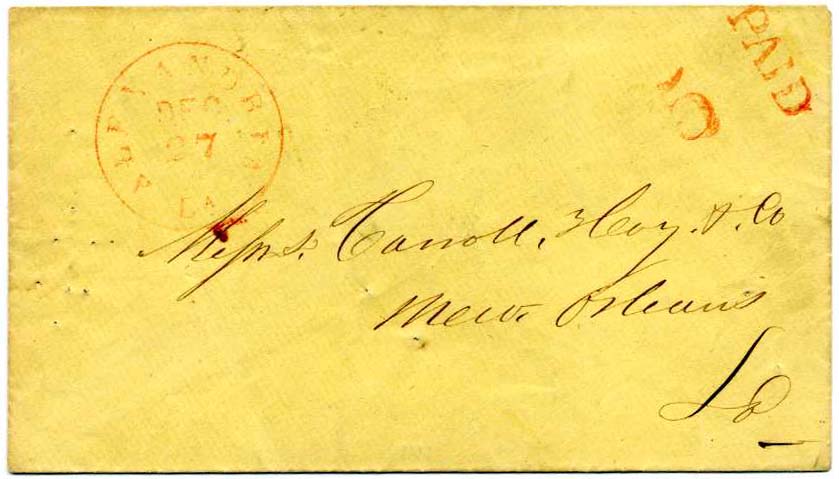 ALEXANDRIA
DEC
27
LA
PAID
10
Messrs. Carroll, Hoy, & Co
New Orleans
La